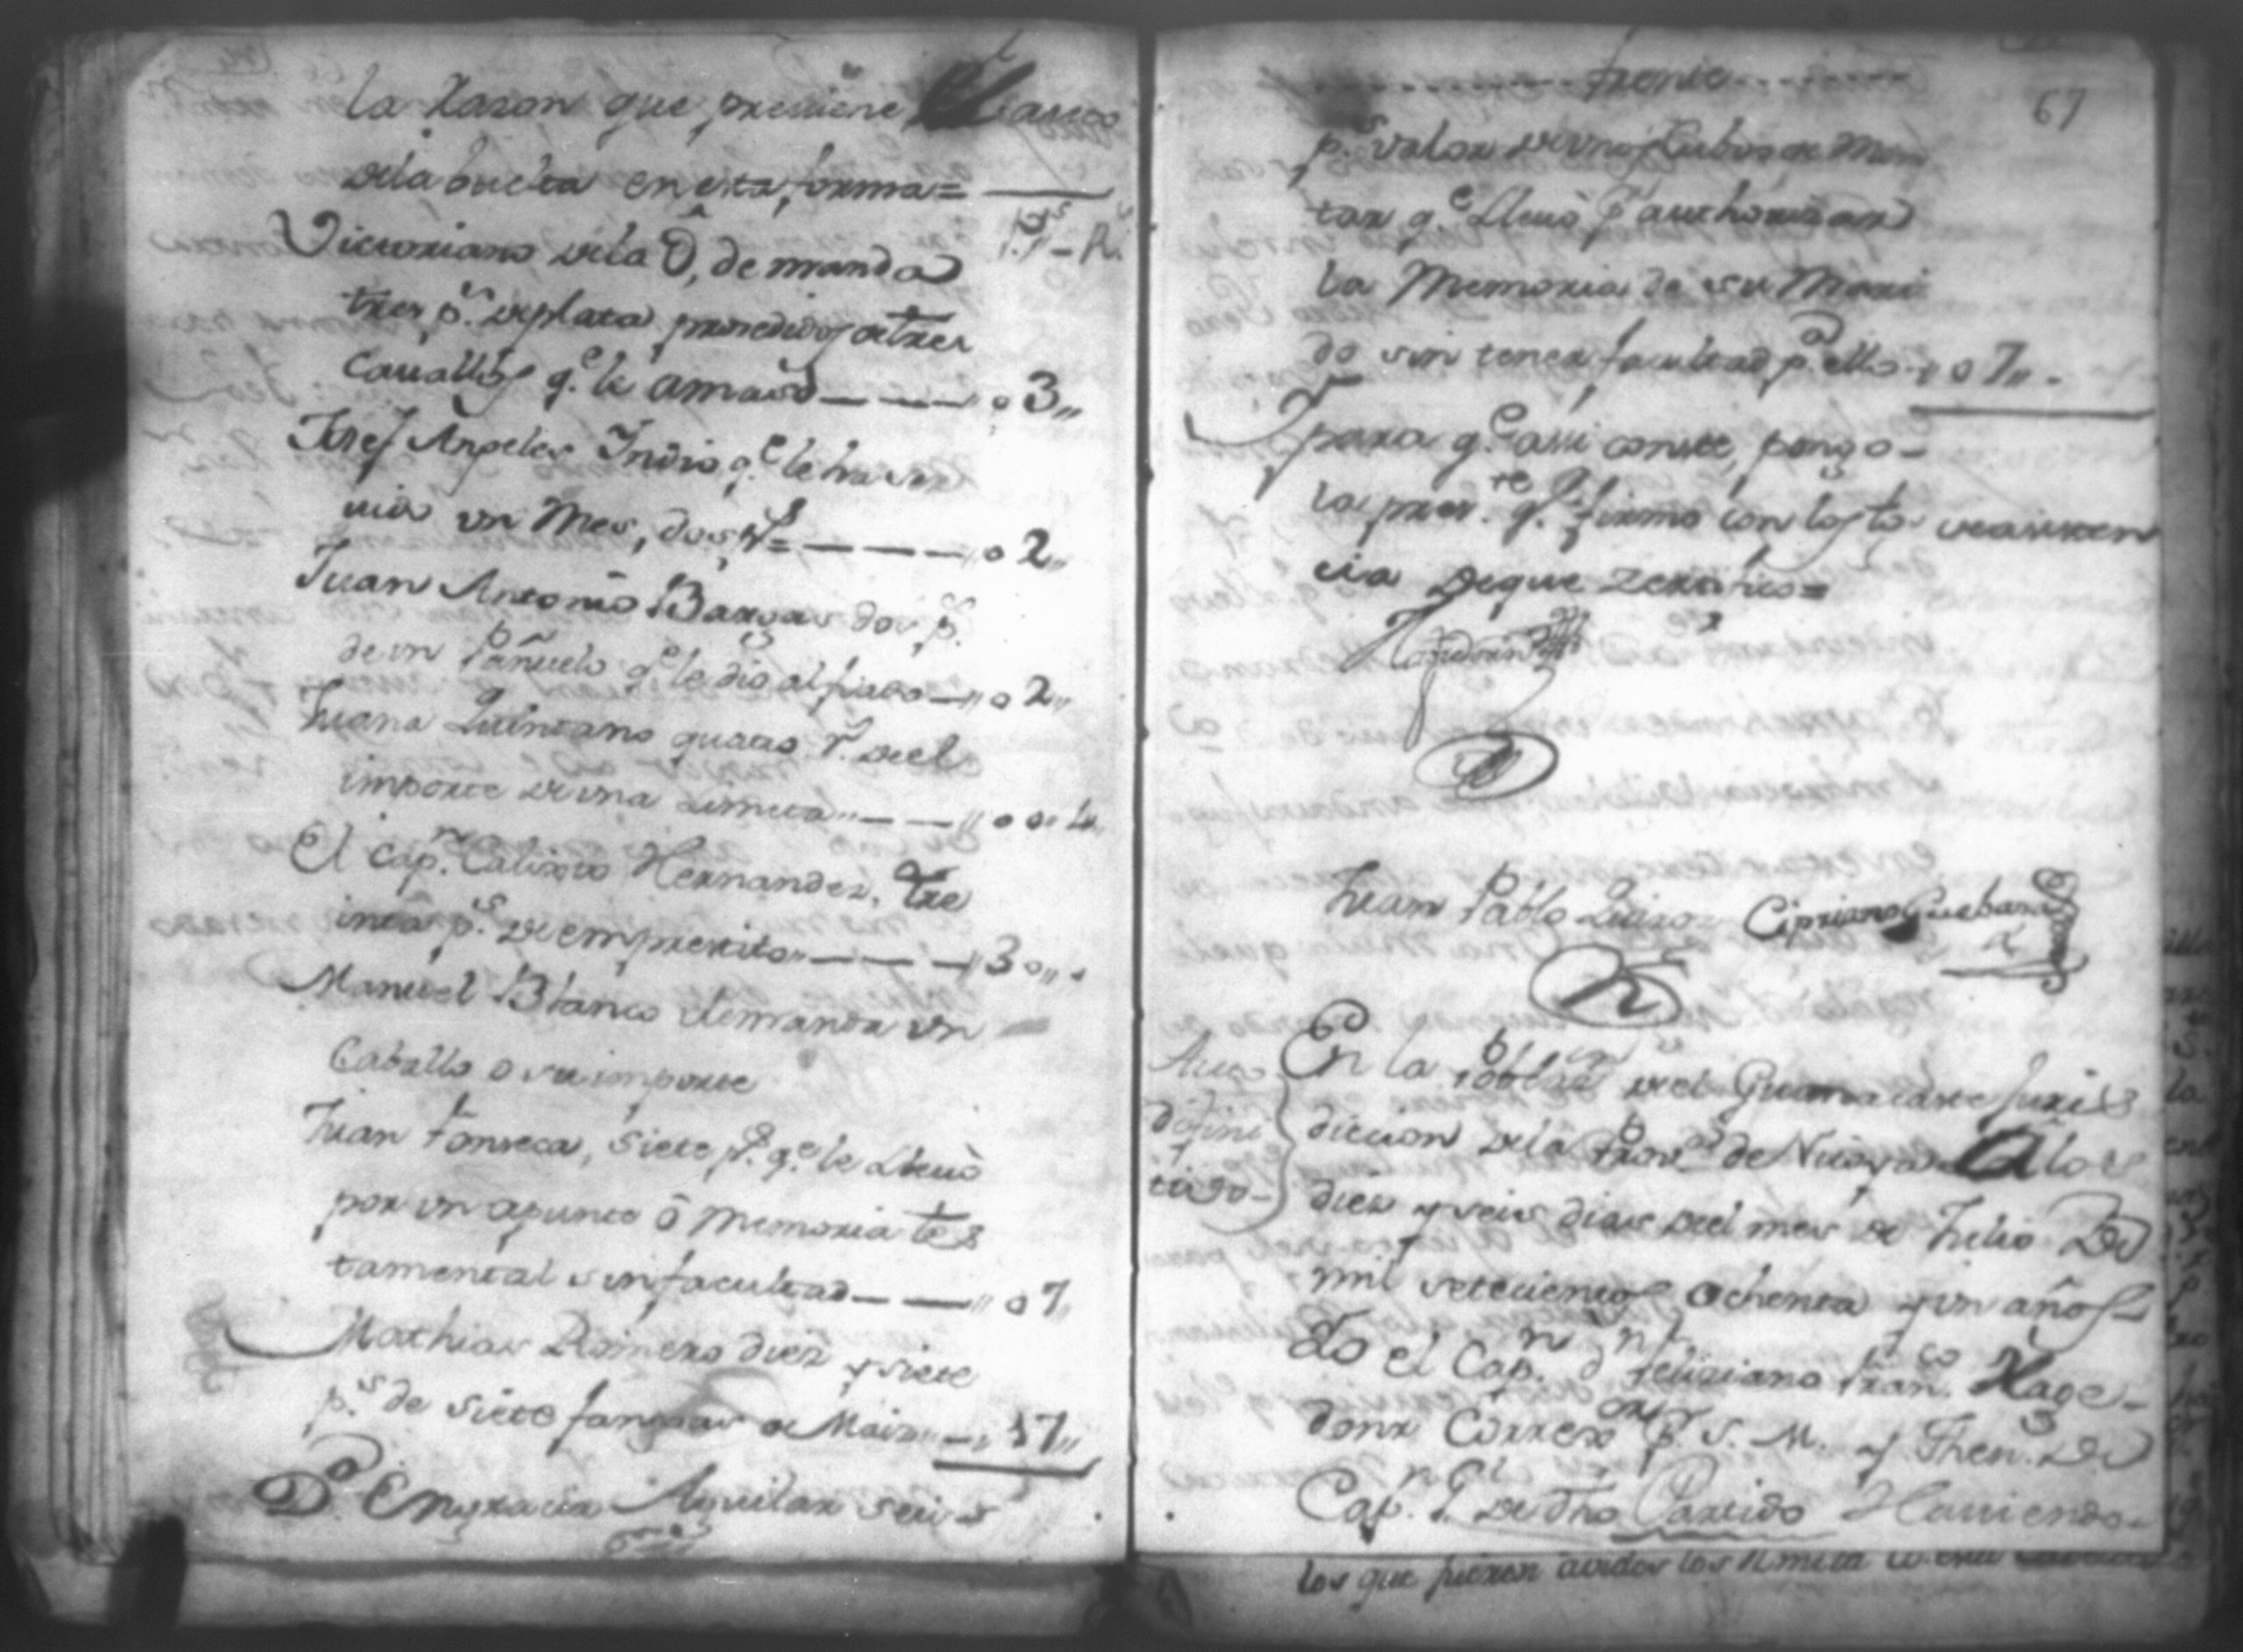 la Razon que previene el auto
dela buelta en esta forma=
p.s - R.s
Victoriano dela O, demanda
tres p.s de plata prosedidos de tres
Cavallos q.e le amansó — — — „ o 3„
Josef Angeles Indio q.e le ha ser
vido un Mes, dos p.s = — — — „ o 2„
Juan Antonio Bargas dos p.s
de un Pañuelo q.e le dio al fiado — „ o 2„
Juana Quintano quatro r.s del
importe de una Limeta „ — — „ o o„ 4„
El Cap.n Calixto Hernandez, tre
inta p.s de emprestito „ — — — „ 3 o„ .
Manuel Blanco demanda un
Caballo o su importe
Juan Fonseca, siete p.s q.e le Llevó
por un apunte ô Memoria tes
tamental sin facultad — — „ o 7„
Mathias Romero diez y siete
p.s de siete fanegas de Maiz „ — „ 17„
D.a Engracia Aguilar seis
67
frente
p.s valor de unos Estribos de Mon
tar q.e Llevó p.r authorizar
la Memoria de su Mari
do sin tener facultad p.a ello „ o 7„ .
Y para q.e assi conste, pongo
la pres.te q.e firmo con los t.os de assisten
cia de que Zertifico=
Juan Pablo Quiros Cipriano Guebara
Auto
difini
tivo
En la Poblaz.on del Guanacaste Juris
diccion dela Prov.a de Nicoya A los
diez y seis dias del mes de Julio De
mil setecientos ochenta y un años
Yo el Cap.n d.n Feliziano Fran.co Hage-
dorn Correx.or p.r S. M. y Then.te De
Cap.n G.l de dho Partido Haviendo
los que fueron